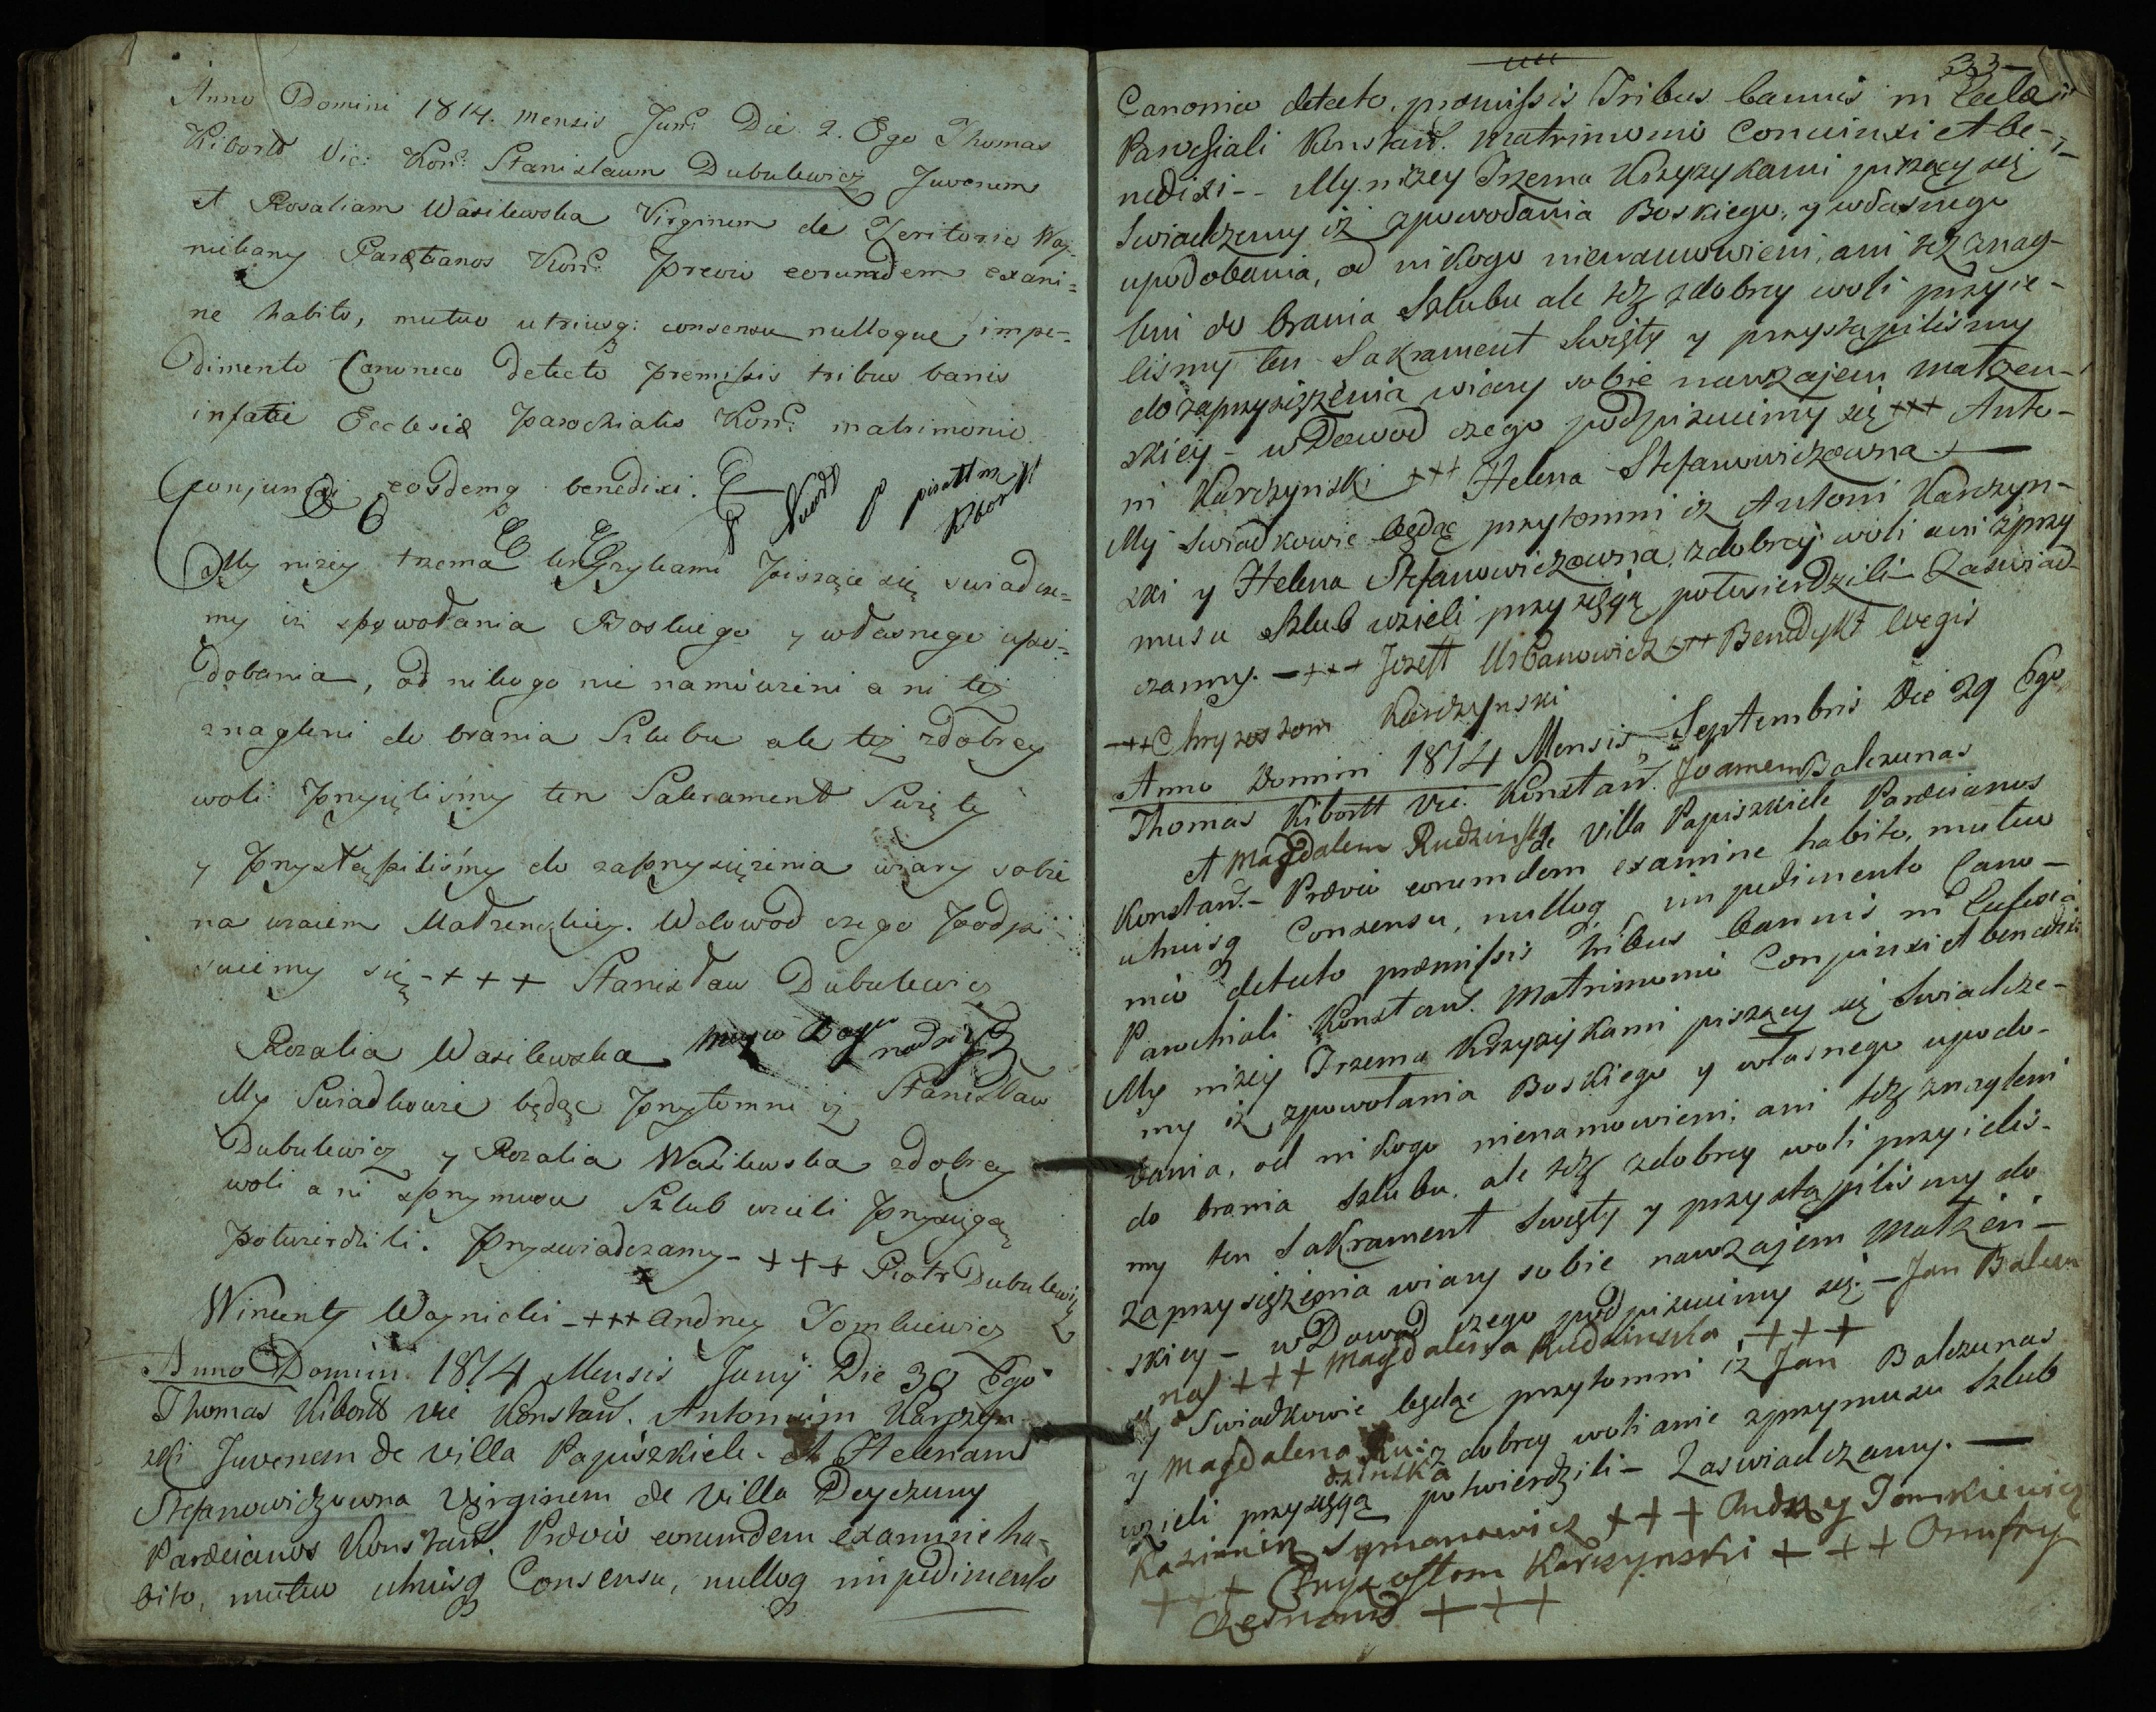 Anno Domini 1814. mensis Junÿ Die 2. Ego Thomas
Kibortt Vic: Kons: Stanislaum Dubulewicz Juvenem
et Rosaliam Wasilewska Virginem de Teritorio Way-
nikany Paraecianos Kons: previo eorumdem exami=
ne habito, mutuo utriusq: consensu nulloque impe=
dimento Canoneco detecto premissis tribus banis
in facie Ecclesiæ Parochialis Kons: matrimonio
Conjunxi eosdemq benedixi.
My nizey trzema krzyzykami piszące się swiadcze=
my iz zpowołania Boskiego y własnego upo=
dobania, od nikogo nie namówieni ani tez
znagleni do brania Szlubu ale tez zdobrey
woli przyięlismy ten Sakrament Swięty
y przystąpilismy do zaprzysięzenia wiary sobie
na wzaiem Małzenskiey. W dowod czego podpi=
suiemy się - +++ Stanisław Dubulewicz
Rozalia Wasilewska
My Swiadkowie będąc przytomni iz Stanisław
Dubulewicz y Rozalia Wasilewska zdobrey
woli ani zprzymusu Szlub wzieli przysięgą
potwierdzili. Przyswiadczamy - +++ Piotr Dubulewicz
Wincenty Waynicki - +++ Andrzey Tomkiewicz
Anno Domini 1814 Mensis Junÿ Die 30 Ego
Thomas Kibortt Vic Konstan. Antonium Karczyn
ski Juvenem de Villa Papiszkiele - et Helenam
Stefanowiczowna Virginem de Villa Deyczuny
Paræcianos Konstan. Prævio eorumdem examine ha-
bito, mutuo utriusq Consensu, nulloq impedimento
33
Canonico detecto, præmissis Tribus bannis in Eccla
Parochiali Konstan. Matrimonio Conuinxi et be-
nedixi - My nizey Trzema Krzyzykami piszący się
swiadczemy iz zpowołania Boskiego, y własnego
upodobania, od nikogo nienamowieni, ani tez znag-
leni do brania Szlubu ale tez zdobrey woli przyie-
lismy ten Sakrament Swięty y przystąpilismy
do zaprzysięzenia wiary sobie nawzajem Małzen-
skiey - w Dowod czego podpisuiemy się +++ Anto-
ni Karczynski +++ Helena Stefanowiczowna. -
My Swiadkowie będąc przytomni iz Antoni Karczyn-
ski y Helena Stefanowiczowna, zdobrey woli ani zprzy
musu Szlub wzieli przysięgą potwierdzili - Zaswiad-
czamy. - +++ Jozeff Urbanowicz +++ Benedykt
+++ Chryzostom Karczynski
Anno Domini 1814 Mensis Septembris Die 29 Ego
Thomas Kibortt Vic. Konstan. Joamem Balczunas
et Magdalem Rudzinska de Villa Papiszkiele Paræcianos
Konstan. - Prævio eorumdem examine habito, mutuo
utriusq Consensu, nulloq impedimento Cano-
nico detecto præmissis Tribus bannis in Eccłesia
Parochiali Konstan. Matrimonio Conjunxi et benedixi
My nizey Trzema Krzyzykami piszący się Swiadcze-
my iz zpowołania Boskiego y własnego upodo-
bania, od nikogo nienamowieni, ani tez znagleni
do brania szlubu, ale tez zdobrey woli przyielis-
my ten Sakrament Swięty y przystąpilismy do
zaprzysięzenia wiary sobie nawzajem Małzen-
skiey - w Dowod czego podpisuiemy się. - Jan Balczu
nas +++ Magdalena Rudzinska +++
My Swiadkowie będąc przytomni iz Jan Balczunas
y Magdalena Rudzinska z dobrey woli anie zprzymusu Szlub
wzieli przysięgą potwierdzili - Zaswiadczamy. -
Kazimierz Symanowicz +++ Andrzey Tomkiewicz
+++ Chryzosttom Karczynski +++ Onufry
+++